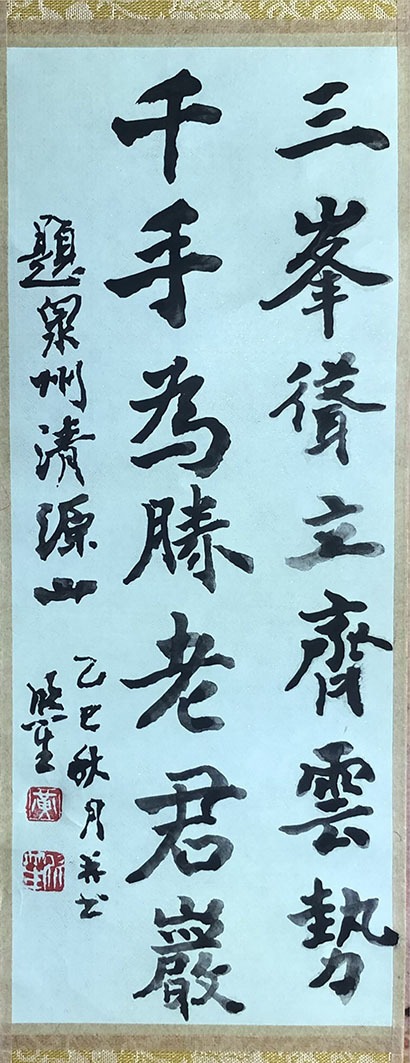 三峯聳立齊雲勢
千手為勝老君巖
題泉州清源山
乙巳秋月并书